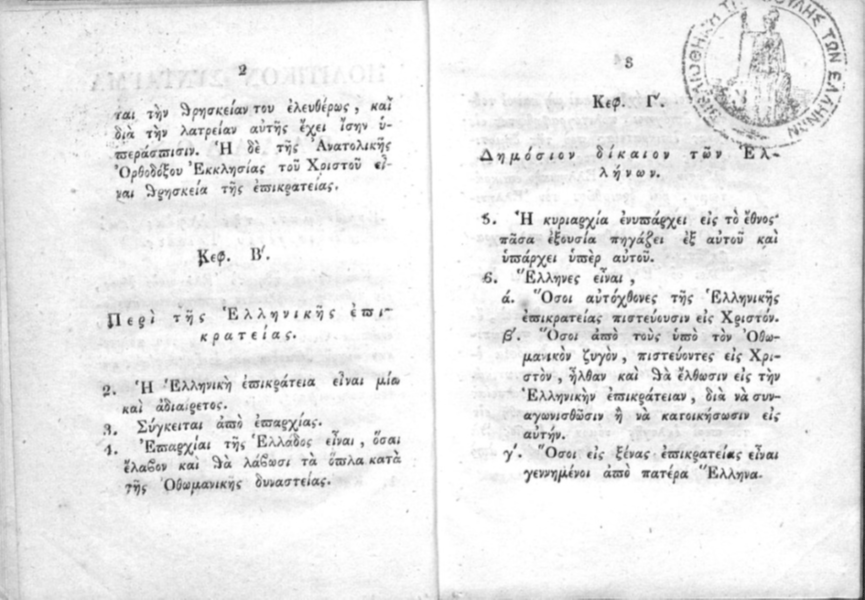 2
ται τὴν θρησκείαν του ἐλευθέρως, καὶ
διὰ τὴν λατρείαν αὐτῆς ἔχει ἴσην ὑ-
περάσπισιν. Ἡ δὲ τῆς Ἀνατολικῆς
Ὀρθοδόξου Ἐκκλησίας τοῦ Χριστοῦ εἶ-
ναι θρησκεία τῆς ἐπικρατείας.
Κεφ. Β′.
Περὶ τῆς Ἑλληνικῆς ἐπι-
κρατείας.
2. Ἡ Ἑλληνικὴ ἐπικράτεια εἶναι μία
καὶ ἀδιαίρετος.
3. Σύγκειται ἀπὸ ἐπαρχίας.
4. Ἐπαρχίαι τῆς Ἑλλάδος εἶναι, ὅσαι
ἔλαβον καὶ θὰ λάβωσι τὰ ὅπλα κατὰ
τῆς Ὀθωμανικῆς δυναστείας.
3
Κεφ. Γ′.
Δημόσιον δίκαιον τῶν Ἑλ-
λήνων.
5. Ἡ κυριαρχία ἐνυπάρχει εἰς τὸ ἔθνος·
πᾶσα ἐξουσία πηγάζει ἐξ αὐτοῦ καὶ
ὑπάρχει ὑπὲρ αὐτοῦ.
6. Ἕλληνες εἶναι,
ά. Ὅσοι αὐτόχθονες τῆς Ἑλληνικῆς
ἐπικρατείας πιστεύουσιν εἰς Χριστόν.
β′. Ὅσοι ἀπὸ τοὺς ὑπὸ τὸν Ὀθω-
μανικὸν ζυγὸν, πιστεύοντες εἰς Χρι-
στὸν, ἦλθαν καὶ θὰ ἔλθωσιν εἰς τὴν
Ἑλληνικὴν ἐπικράτειαν, διὰ νὰ συν-
αγωνισθῶσιν ἢ νὰ κατοικήσωσιν εἰς
αὐτήν.
γ′. Ὅσοι εἰς ξένας ἐπικρατείας εἶναι
γεννημένοι ἀπὸ πατέρα Ἕλληνα.
ΒΙΒΛΙΟΘΗΚΗ ΤΗΣ ΒΟΥΛΗΣ ΤΩΝ ΕΛΛΗΝΩΝ